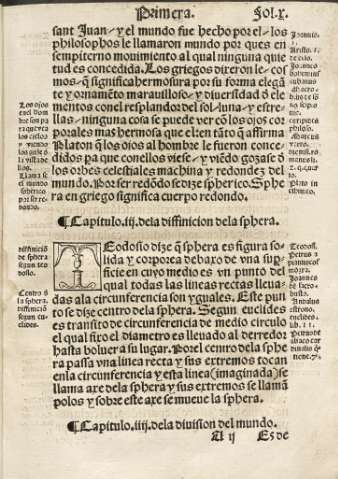 Primera. Fol.x.
sant Juan: y el mundo fue hecho por el: los
philosophos le llamaron mundo por que es en
sempiterno mouimiento al qual ninguna quie
tud es concedida. Los griegos dixeron le cos-
mos: q̃ significa hermosura por su forma elegã
te y ornamẽto marauilloso: y diuersidad d̃ ele
mentos con el resplandor del sol: luna: y estre
llas: ninguna cosa se puede ver cõ los ojos cor
porales mas hermosa que el: en tãto q̃ affirma
Platon q̃ los ojos al hombre le fueron conce-
didos pa que conellos viesse: y viẽdo gozasse d̃
los orbes celestiales machina y redondez del
mundo. Por ser redõdo se dize spherico. Sphe
ra en griego significa cuerpo redondo.
Los ojos
Llama se
el mundo
spherico
por ser re-
dondo.
¶ Capitulo.iij. dela diffinicion dela sphera.
TEodosio dize q̃ sphera es figura so-
lida y corporea debaxo de vna sup̃
ficie en cuyo medio es vn punto del
qual todas las lineas rectas lleua-
das ala circunferencia son yguales. Este pun
to se dize centro dela sphera. Segun euclides
es transito de circunferencia de medio circulo
el qual fixo el diametro es lleuado al derredor
hasta boluer a su lugar. Por el centro dela sphe
ra passa vna linea recta y sus extremos tocan
enla circunferencia y esta linea (imaginada) se
llama axe dela sphera y sus extremos se llamã
polos y sobre este axe se mueue la sphera.
diffinició
de sphera
segun teo
dosio.
Centro d̃
la sphera.
diffinició
segun eu-
clides.
¶ Capitulo.iiij. dela diuision del mundo.
A ij Es de